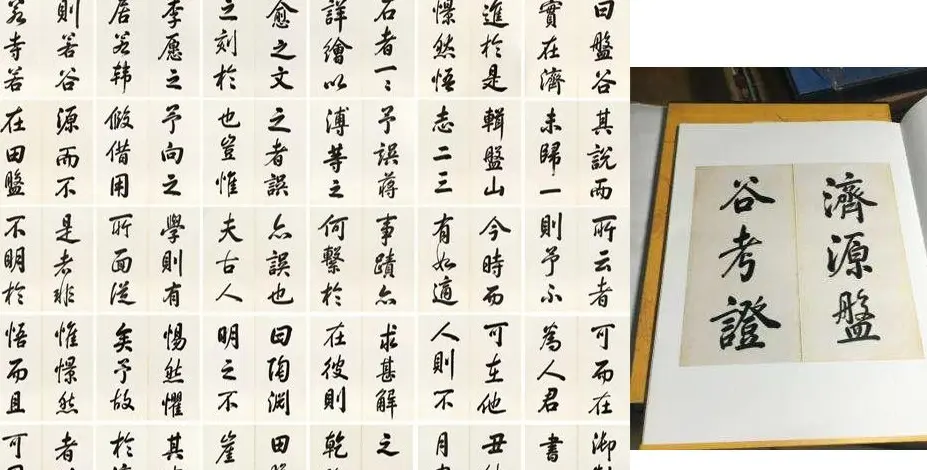 曰盤谷
實在濟
進於是
憬然悟
石者一〻
詳繪以
愈之文
之刻於
李愿之
居若韩
則若谷
若寺若
其說而
未歸一
輯盤山
志二三
予誤蔣
溥等之
之者誤
也豈惟
予向之
假借用
源而不
在田盤
所云者
則予不
今時而
有如適
事蹟亦
何繫於
亦誤也
夫古人
學則有
所面從
是者非
不明於
可而在
為人君
可在他
人則不
求甚解
在彼則
曰陶淵
明之不
惕然懼
矣予故
惟憬然
悟而且
御
書
丑
月
之
乾
田
崖
其
於
者
可
濟源盤
谷考證